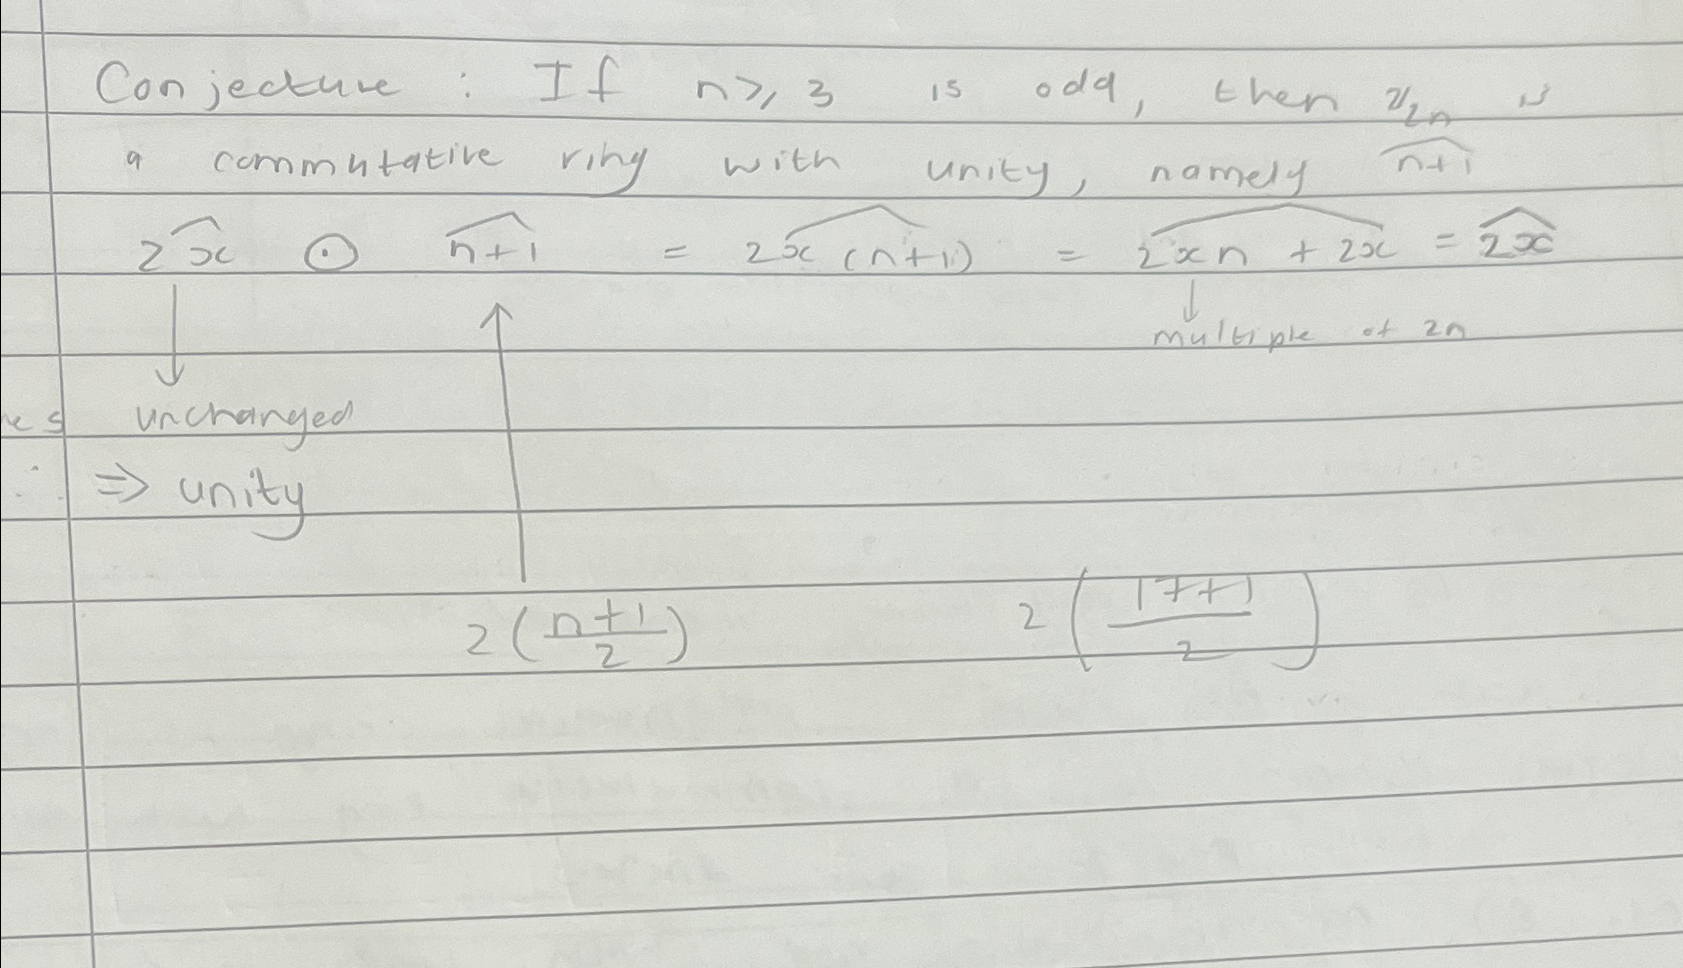 Conjecture : If n ≥ 3 is odd, then ℤ/2n is
a commutative ring with unity, namely \widehat{n+1}
\widehat{2x} ⊙ \widehat{n+1} = \widehat{2x(n+1)} = \widehat{2xn + 2x} = \widehat{2x}
↓ multiple of 2n
unchanged
⇒ unity
2(\frac{n+1}{2}) 2(\frac{17+1}{2})